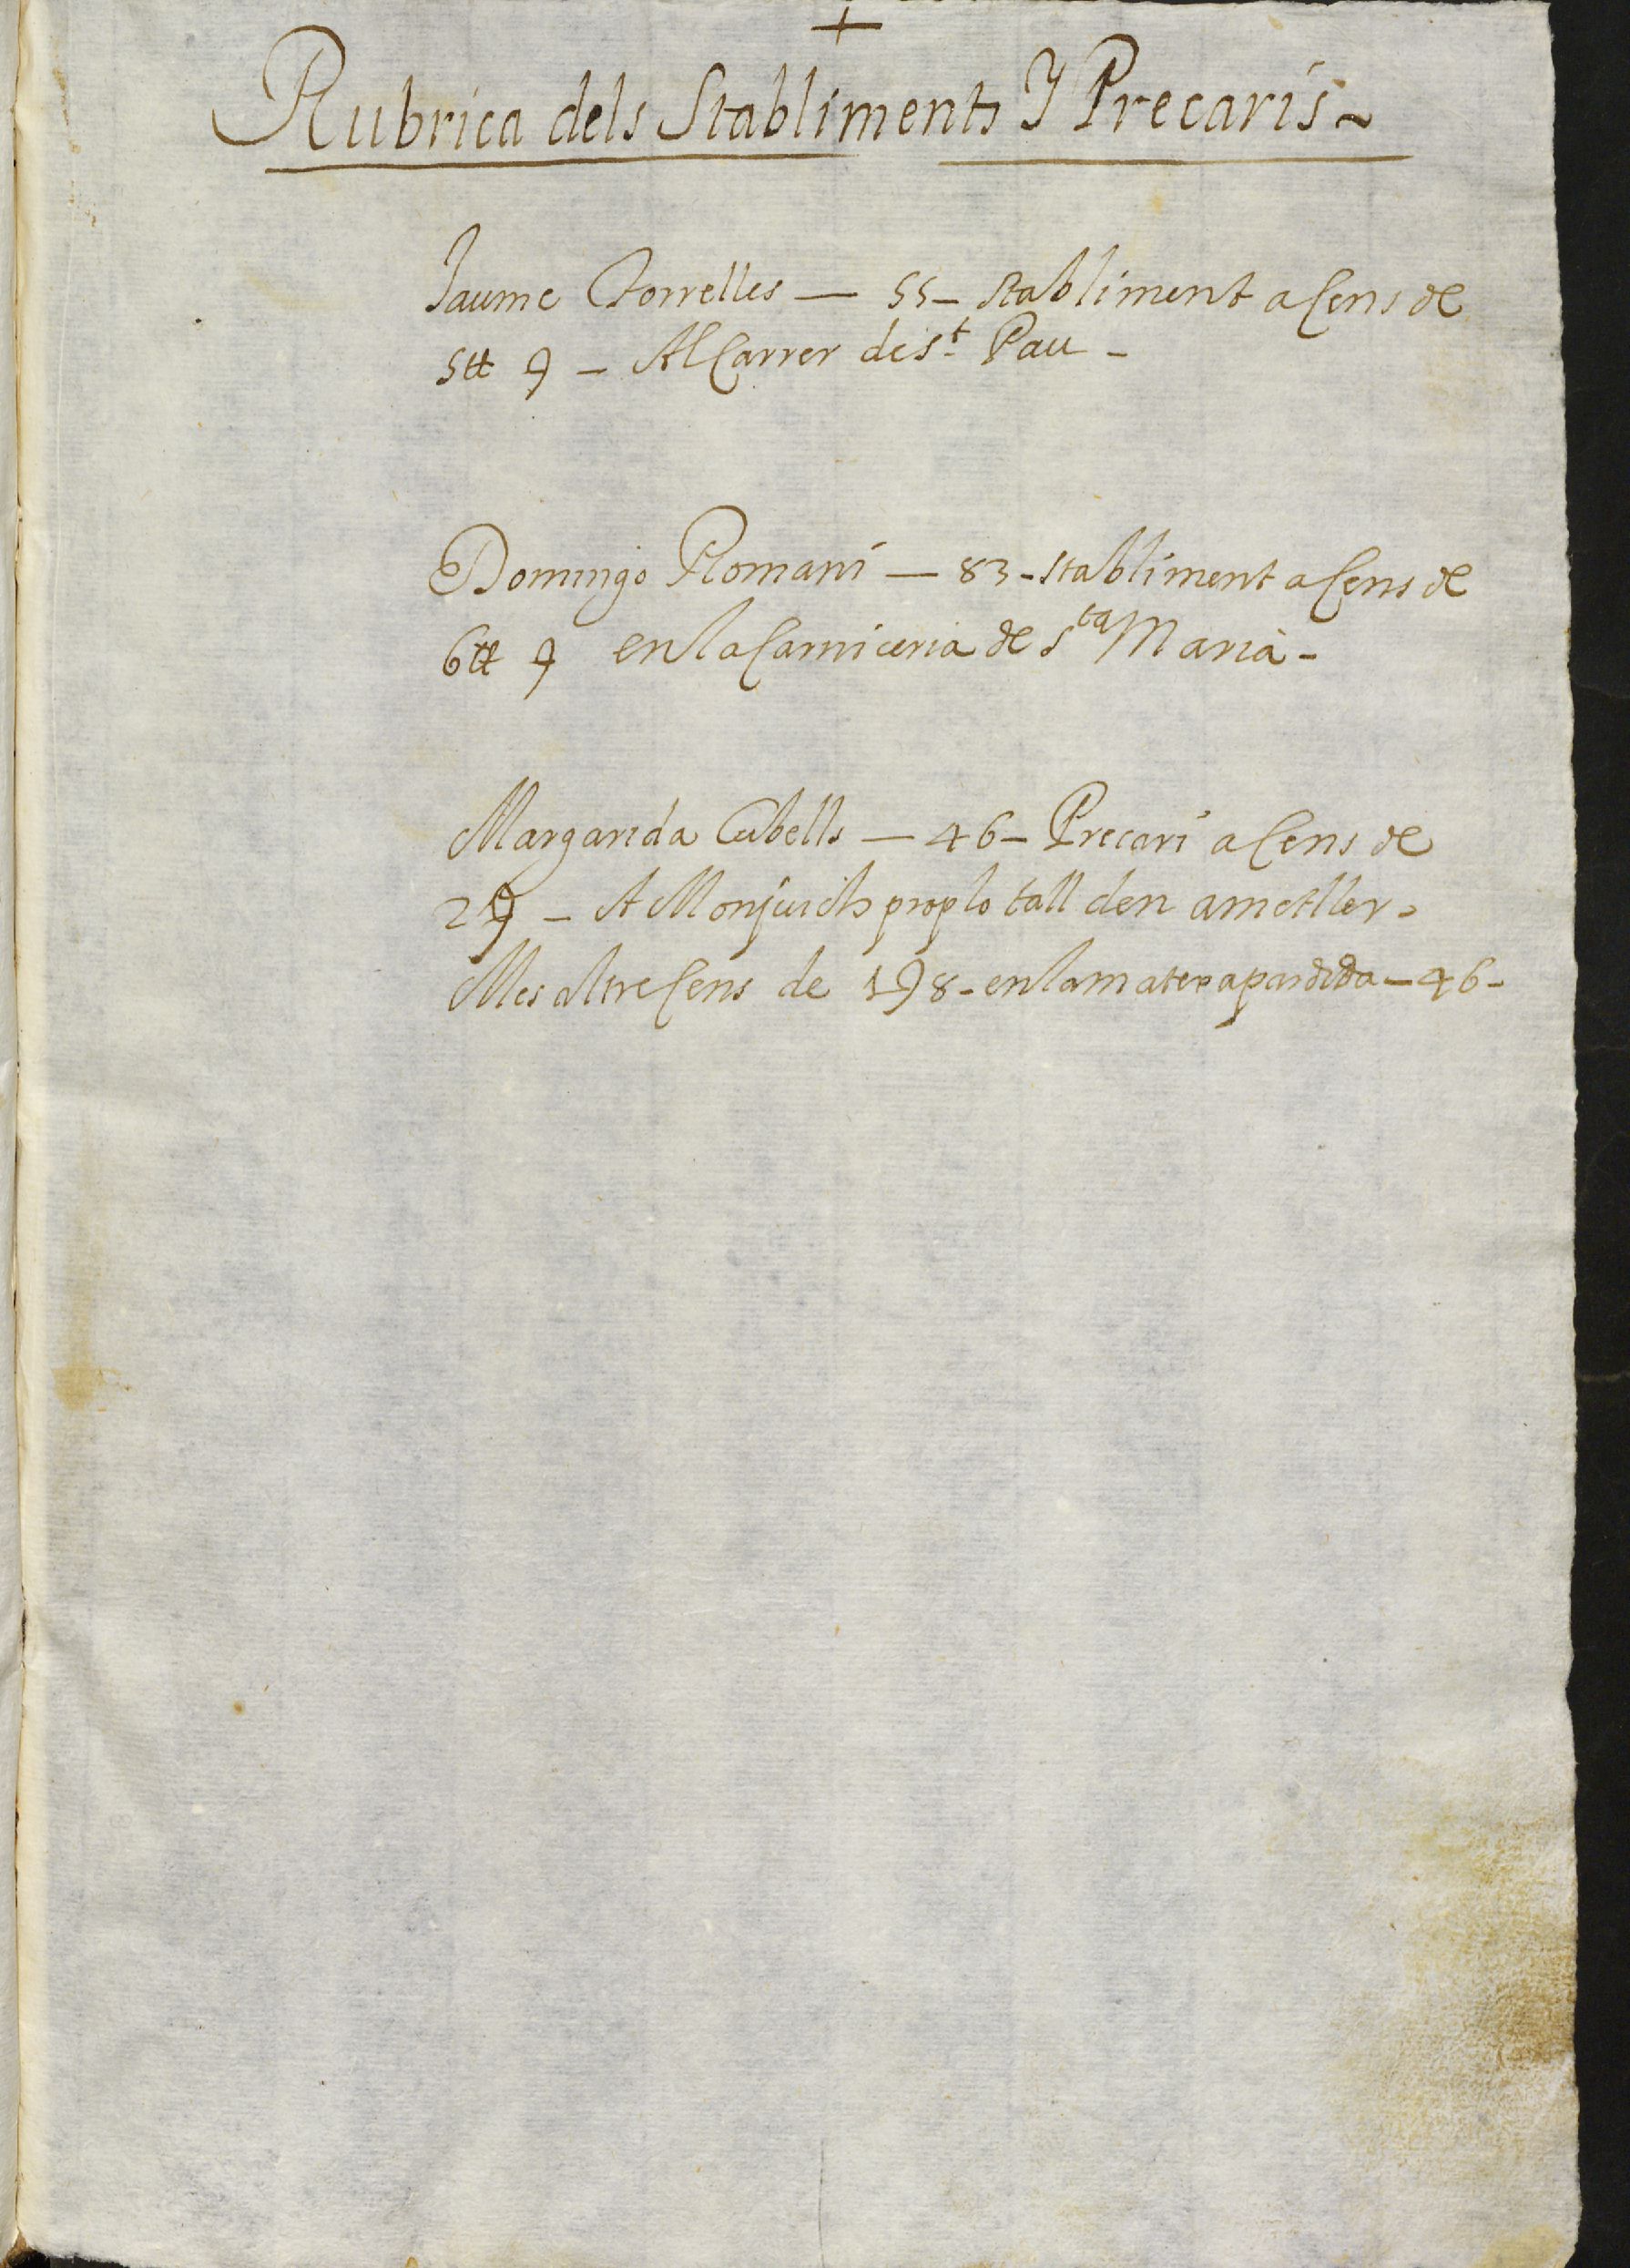 +
Rubrica dels Stabliments Y Precaris ~
Jaume Torrelles — 55 – stabliment a Cens de
5 ₶ 9 – Al Carrer de St. Pau –
Domingo Romani — 83 – stabliment a Cens de
6 ₶ 9 en la Carniceria de Sta Maria –
Margarida Cubells — 46 – Precari a Cens de
2 9 – A Monjuich prop lo tall den ametller.
Mes altre Cens de 1 9 8 – en la matexa partida – 46 –